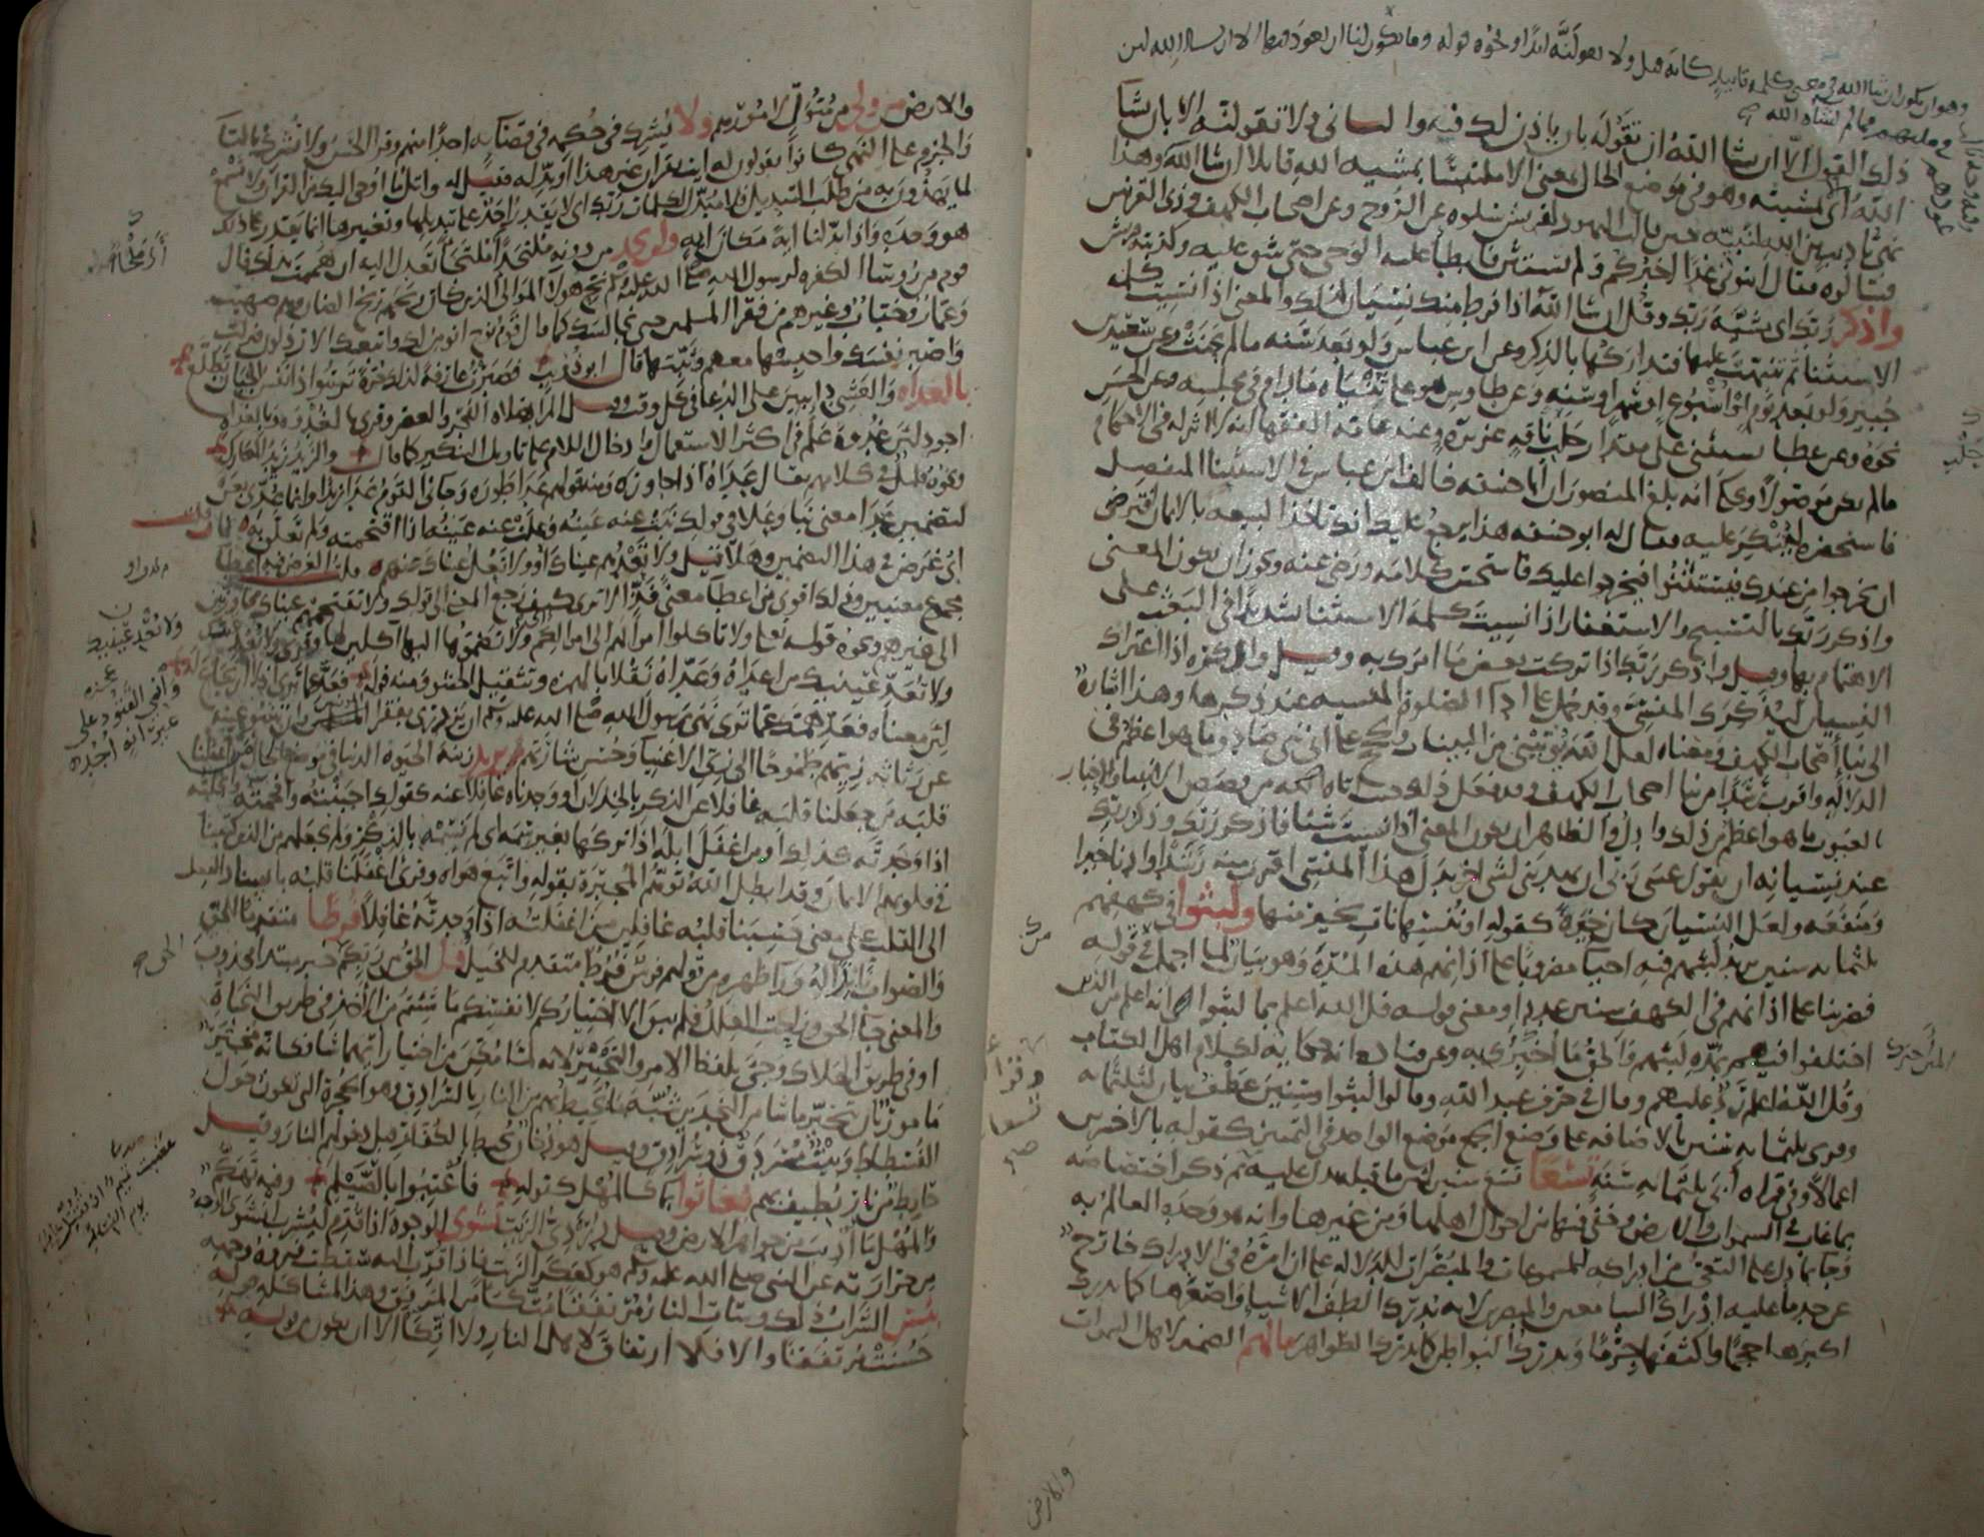 وهو ان يكون ان شا الله في معنى كلمه تابيد كانه قيل ولا تقولنه ابدا ونحوه قوله وما يكون لنا ان نعود فيها الا ان يسا الله لان
عودهم في ملتهم مما لم يشاه الله
ذلك القول الا ان يشا الله ان تقوله بان ياذن لك فيه والثاني ولا تقولنه الا بان يشا
الله اي بمشيته وهو في موضع الحال بمعنى الا ملتبسا بمشيه الله قايلا ان شا الله وهذا
نهي تاديب من الله لنبيه حين قالت اليهود لقريش سلوه عن الروح وعن اصحاب الكهف وذي القرنين
فسالوه فقال ايتوني غدا اخبركم ولم يستثن فابطا عليه الوحي حتى شق عليه وكذبته قريش
واذكر ربك اي مشيه ربك وقل ان شا الله اذا فرط منك نسيان لذلك والمعنى اذا نسيت كلمه
الاستثنا ثم تنبهت عليها فتداركها بالذكر وعن ابن عباس ولو بعد سنه ما لم يحنث وعن سعيد بن
جبير ولو بعد يوم او اسبوع او شهر او سنه وعن طاوس هو على ثنياه مادام في مجلسه وعن الحسن
نحوه وعن عطا يستثنى على مقدار حلب ناقه غزيره وعند عامه الفقها انه لا اثر له في الاحكام
ما لم يكن موصولا ويحكى انه بلغ المنصور ان ابا حنيفه خالف ابن عباس في الاستثنا المنفصل
فاستحضره لينكر عليه فقال له ابو حنيفه هذا يرجع عليك انك تاخذ البيعه بالايمان افترضى
ان يخرجوا من عندك فيستثنوا فيخرجوا عليك فاستحسن كلامه ورضي عنه ويجوز ان يكون المعنى
واذكر ربك بالتسبيح والاستغفار اذا نسيت كلمه الاستثنا تشديدا في البعث على
الاهتمام بها وقيل واذكر ربك اذا تركت بعض ما امرك به وقيل واذكره اذا اعتراك
النسيان ليذكرك المنسي وقد حمل على ادا الصلوه المنسيه عند ذكرها وهذا اشاره
الى نبا اصحاب الكهف ومعناه لعل الله يوتيني من البينات والحجج على اني نبي صادق ما هو اعظم في
الدلاله واقرب رشدا من نبا اصحاب الكهف وقد فعل ذلك حيث اتاه من قصص الانبيا والاخبار
بالغيوب ما هو اعظم من ذلك وادل والظاهر ان يكون المعنى اذا نسيت شيا فاذكر ربك وذكر ربك
عند نسيانه ان يقول عسى ربي ان يهديني لشي اخر بدل هذا المنسي اقرب منه رشدا وادنى خيرا
ومنفعه ولعل النسيان كان خيره كقوله او ننسها نات بخير منها ولبثوا في كهفهم
ثلثمايه سنين يريد لبثهم فيه احيا مضروبا على اذانهم هذه المده وهو بيان لما اجمل في قوله
فضربنا على اذانهم في الكهف سنين عددا ومعنى قوله قل الله اعلم بما لبثوا انه اعلم من الذين
اختلفوا فيهم بمده لبثهم والحق ما اخبرك به وعن قتاده انه حكايه لكلام اهل الكتاب
وقل الله اعلم رد عليهم وقال في حرف عبد الله وقالوا لبثوا وسنين عطف بيان لثلثمايه
وقري ثلثمايه سنين بالاضافه على وضع الجمع موضع الواحد في التمييز كقوله بالاخسرين
اعمالا وفي قراه ابي ثلثمايه سنه تسعا تسع سنين لان ما قبله يدل عليه ثم ذكر اختصاصه
بما غاب في السموات والارض وخفي فيها من احوال اهلها ومن غيرها وانه هو وحده العالم به
وجا بما دل على التعجب من ادراكه المسموعات والمبصرات للدلاله على ان امره في الادراك خارج
عن حد ما عليه ادراك السامعين والمبصرين لانه يدرك الطف الاشيا واصغرها كما يدرك
اكبرها حجما واكثفها جرما ويدرك البواطن كما يدرك الظواهر ما لهم الضمير لاهل السموات
والارض
والارض من ولي من متول لامورهم ولا يشرك في حكمه في قضايه احدا منهم وقرا الحسن ولا تشرك بالتا
والجزم على النهي كانوا يقولون له ايت بقران غير هذا او بدله فقيل له واتل ما اوحي اليك من القران ولا تسمع
لما يهذون به من طلب التبديل فلا مبدل لكلمات ربك اي لا يقدر احد على تبديلها وتغييرها انما يقدر على ذلك
هو وحده واذا بدلنا ايه مكان ايه ولن تجد من دونه ملتحدا ملتجا تعدل اليه ان هممت بذلك قال
قوم من روسا الكفره لرسول الله صلى الله عليه وسلم نح هولا الموالي الذين كان ريحهم ريح الضان وهم صهيب
وعمار وخباب وغيرهم من فقرا المسلمين حتى نجالسك كما قال قوم نوح انومن لك واتبعك الارذلون فنزلت
واصبر نفسك واحبسها معهم وثبتها قال ابو ذويب فصبرت عارفه لذلك حره ترسو اذا نفس الجبان تطلع
بالغداه والعشي دايبين على الدعا في كل وقت وقيل المراد صلاه الفجر والعصر وقري بالغدوه وبالغداه
اجود لان غدوه علم في اكثر الاستعمال وادخال اللام على تاويل التنكير كما قال والزيد زيد المعارك
ونحوه قليل في كلامهم يقال عداه اذا جاوزه ومنه قولهم عدا طوره وجاني القوم عدا زيدا وانما عدي بعن
لتضمين عدا معنى نبا وعلا في قولك نبت عنه عينه وعلت عنه عينه اذا اقتحمته ولم تعلق به فان قلت
اي غرض في هذا التضمين وهلا قيل ولا تعدهم عيناك او ولا تعل عيناك عنهم قلت الغرض فيه اعطا
مجموع معنيين وذلك اقوى من اعطا معنى فذ الا ترى كيف رجع المعنى الى قولك ولا تقتحمهم عيناك مجاوزتين
الى غيرهم ونحوه قوله تعالى ولا تاكلوا اموالهم الى اموالكم اي ولا تضموها اليها اكلين لها وقري ولا تعد عينيك
ولا تعد عينيك من اعداه وعداه نقلا بالهمزه وتثقيل الحشو ومنه قوله فعد عما ترى اذ لا ارتجاع له
لان معناه فعد همك عما ترى نهي رسول الله صلى الله عليه وسلم ان يزدري بفقرا المومنين وان تنبو عينه
عن رثاثه زيهم طموحا الى زي الاغنيا وحسن شارتهم تريد زينه الحيوه الدنيا في موضع الحال من اغفلنا
قلبه من جعلنا قلبه غافلا عن الذكر بالخذلان او وجدناه غافلا عنه كقولك اجبنته وافحمته وابخلته
اذا وجدته كذلك او من اغفل ابله اذا تركها بغير سمه اي لم نسمه بالذكر ولم نجعلهم من الذين كتبنا
في قلوبهم الايمان وقد ابطل الله توهم المجبره بقوله واتبع هواه وقري اغفلنا قلبه باسناد الفعل
الى القلب على معنى حسبنا قلبه غافلين من اغفلته اذا وجدته غافلا فرطا متقدما للحق
والصواب نابذا له ورا ظهره من قولهم فرس فرط متقدم للخيل وقل الحق من ربكم خبر مبتدا محذوف
والمعنى جا الحق وزاحت العلل فلم يبق الا اختياركم لانفسكم ما شيتم من الاخذ في طريق النجاه
او في طريق الهلاك وجي بلفظ الامر والتخيير لانه لما مكن من اختيار ايهما شا فكانه مخير
مامور بان يتخير ما شا من النجدين شبه ما يحيط بهم من النار بالسرادق وهو الحجره التي تكون حول
الفسطاط وبيت مسردق ذو سرادق وقيل هو دخان يحيط بالكفار قبل دخولهم النار وقيل
حايط من نار يطيف بهم يغاثوا بما كالمهل كقوله فاعتبوا بالصيلم وفيه تهكم
والمهل ما اذيب من جواهر الارض وقيل دردي الزيت يشوي الوجوه اذا قدم ليشرب انشوى الوجه
من حرارته عن النبي صلى الله عليه وسلم هو كعكر الزيت فاذا قرب اليه سقطت فروه وجهه
بيس الشراب ذلك وساءت النار مرتفقا متكا من المرفق وهذا لمشاكله قوله
حسنت مرتفقا والا فلا ارتفاق لاهل النار ولا اتكا الا ان يكون من قوله